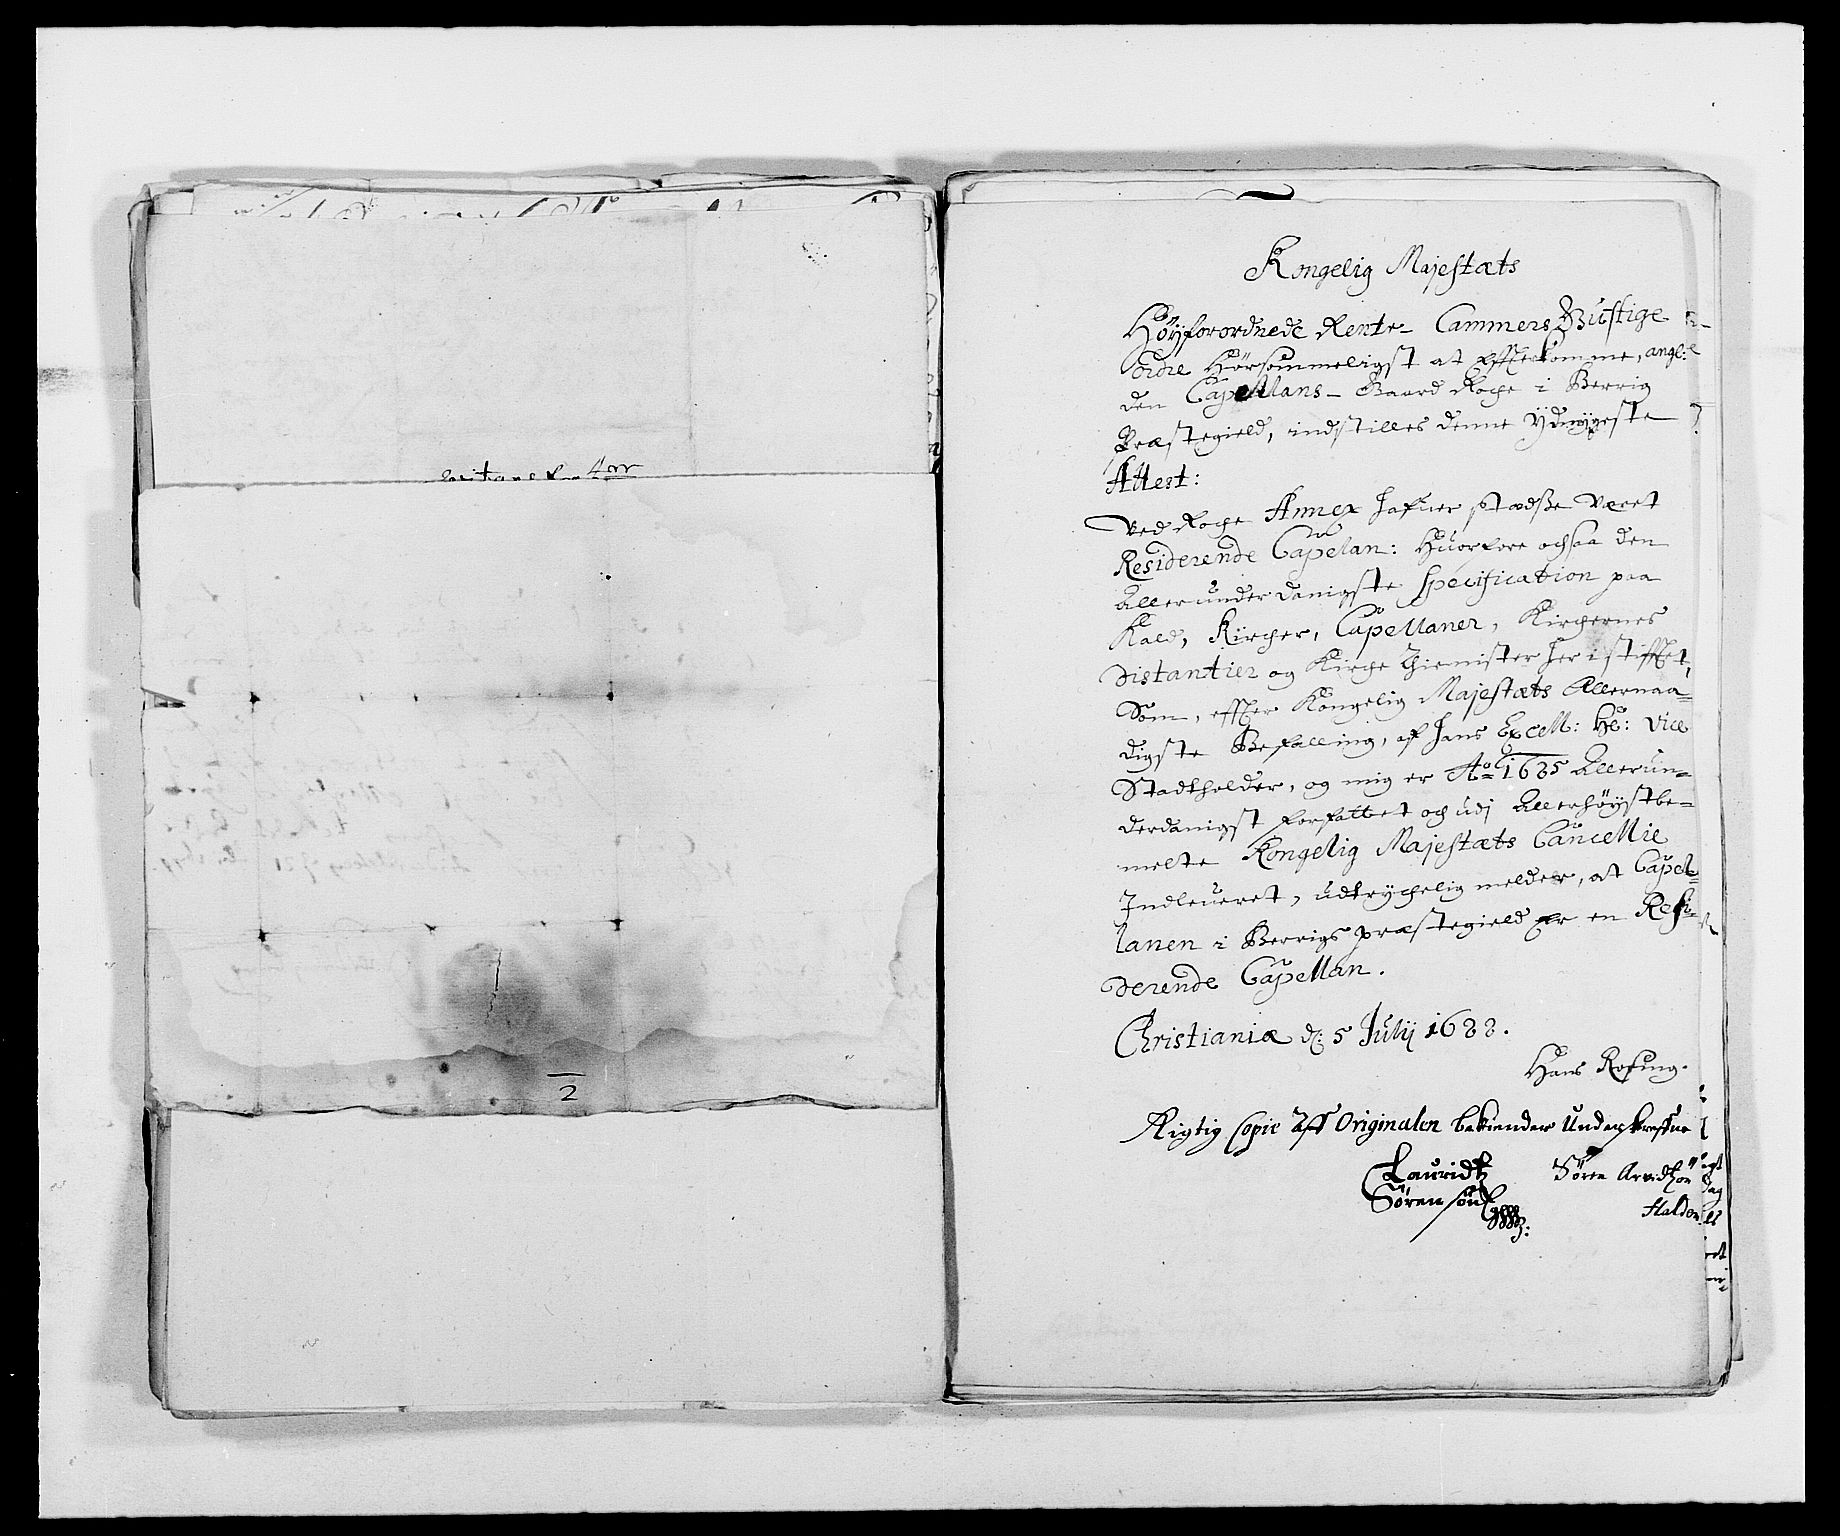 2
Kongelig Majestæts
Høyforordnede Rente- Cammers Gunstige
ordre Hörsommeligst at effterkomme, angl:
den Capellans- Gaard Roche i Berrig
Præstegield, indstilles denne Ydmygeste
Attest:
Ved Roche Annex hafuer stædsße været
Residerende Capelan: Huorfore ochsaa den
Allerunderdanigste Specification paa
Kald, Kircher, Capellaner, Kirchernes
Distantier og Kirche Thienister her i Stifftet,
Som, effter Kongelig Majestæts Allernaa-
digste Befalling, af hans Excell: Hr: Vice
Stadtholder, og mig er Ao 1685 Allerun-
derdanigst forfattet och udj Allerhöystbe-
melte Kongelig Majestæts Cancellie
Indleueret, udtrychelig melder, at Capel-
lanen i Berrigs præstegield er en Resi-
derende Capellan.
Christianiæ d: 5 Julij 1688.
Hans Rosing.
Rigtig Copie aff Originalen bekiender Underskrefne
Lauridtz
Sörensön
Sören Arvidtzon
Halden